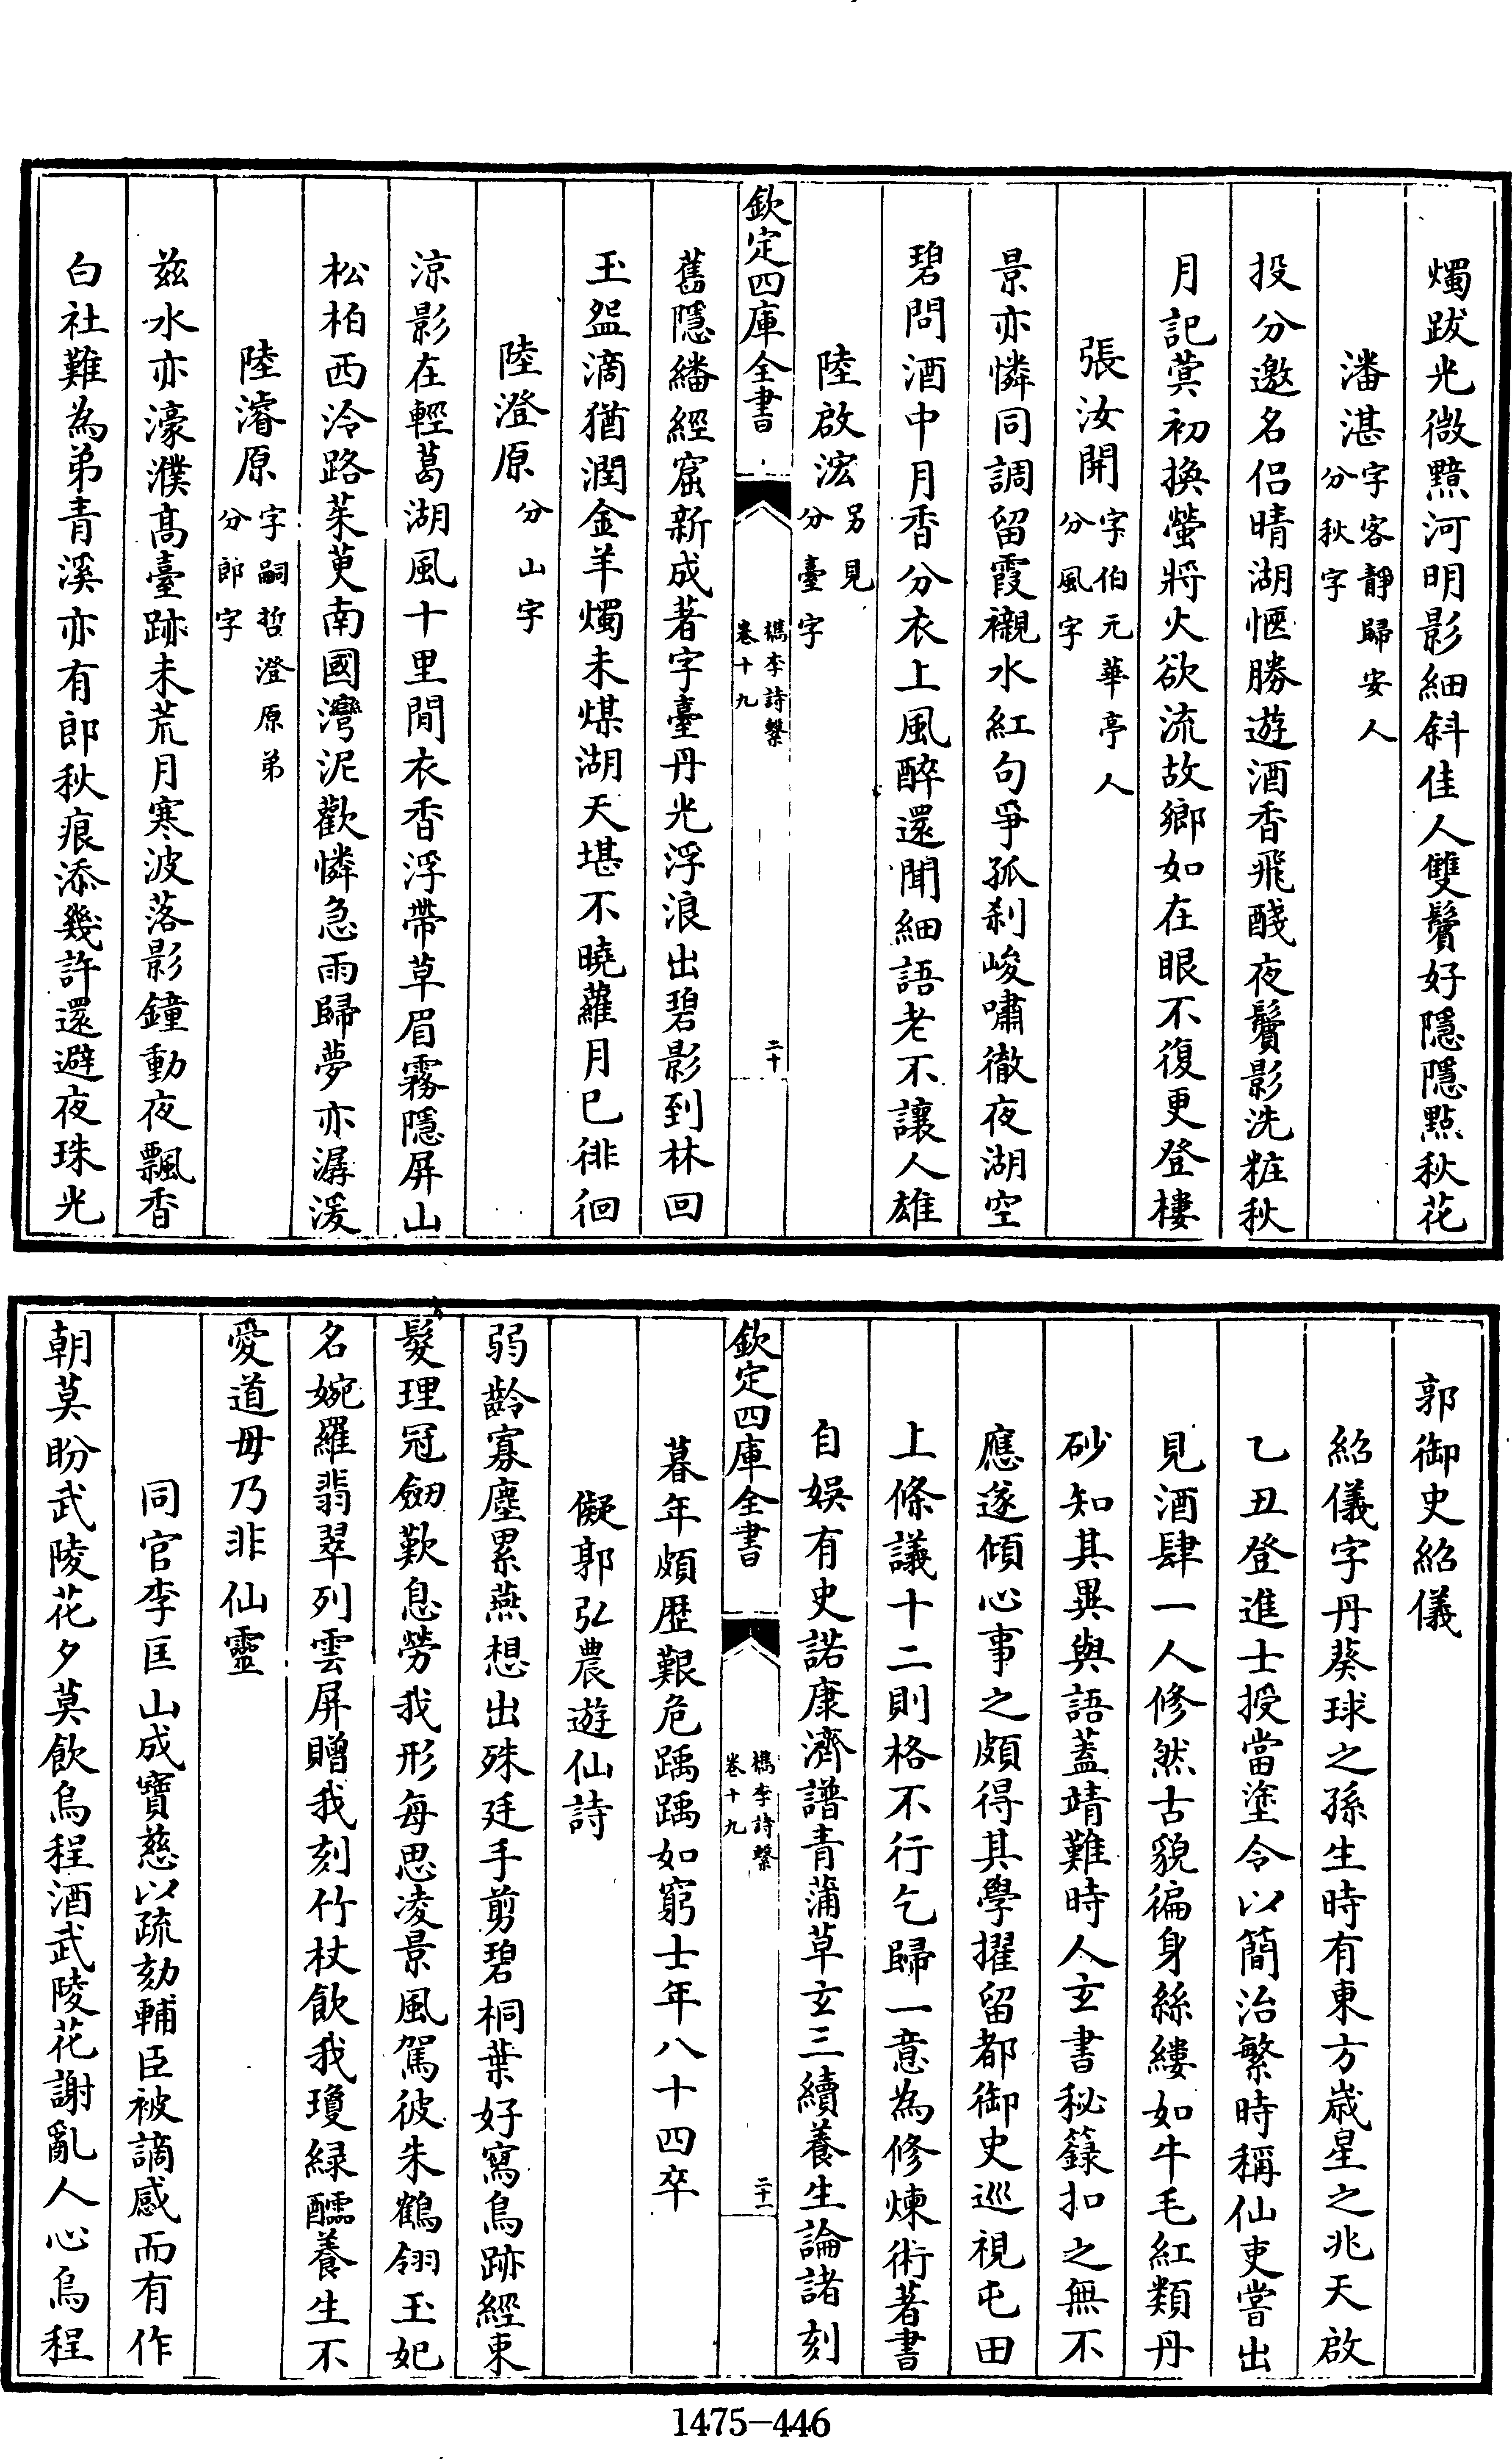 燭跋光微黯河明影細斜佳人雙鬢好隱隱點秋花
潘湛字客靜歸安人分秋字
投分邀名侶晴湖愜勝遊酒香飛醆夜鬢影洗粧秋
月記蓂初換螢將火欲流故鄉如在眼不復更登樓
張汝開字伯元華亭人分風字
景亦憐同調留霞襯水紅句爭孤刹峻嘯徹夜湖空
碧問酒中月香分衣上風醉還聞細語老不讓人雄
陸啟浤另見分臺字
欽定四庫全書
檇李詩繫
卷十九
二十
舊隱繙經窟新成著字臺丹光浮浪出碧影到林回
玉盌滴猶潤金羊燭未煤湖天堪不曉蘿月已徘徊
陸澄原分山字
涼影在輕葛湖風十里閒衣香浮帶草眉霧隱屏山
松柏西泠路茱萸南國灣泥歡憐急雨歸夢亦潺湲
陸濬原字嗣哲澄原弟分郎字
茲水亦濠濮高臺跡未荒月寒波落影鐘動夜飄香
白社難為弟青溪亦有郎秋痕添幾許還避夜珠光
郭御史紹儀
紹儀字丹葵球之孫生時有東方歲星之兆天啟
乙丑登進士授當塗令以簡治繁時稱仙吏嘗出
見酒肆一人修然古貌徧身絲縷如牛毛紅類丹
砂知其異與語蓋靖難時人玄書秘籙扣之無不
應遂傾心事之頗得其學擢留都御史巡視屯田
上條議十二則格不行乞歸一意為修煉術著書
自娛有史諾康濟譜青蒲草玄三續養生論諸刻
欽定四庫全書
檇李詩繫
卷十九
二十一
暮年頗歷艱危踽踽如窮士年八十四卒
儗郭弘農遊仙詩
弱齡寡塵累燕想出殊廷手剪碧桐葉好寫鳥跡經東
髮理冠劒歎息勞我形每思凌景風駕彼朱鶴翎玉妃
名婉羅翡翠列雲屏贈我刻竹杖飲我瓊緑醹養生不
愛道毋乃非仙靈
同官李匡山成寶慈以疏劾輔臣被謫感而有作
朝莫盼武陵花夕莫飲烏程酒武陵花謝亂人心烏程